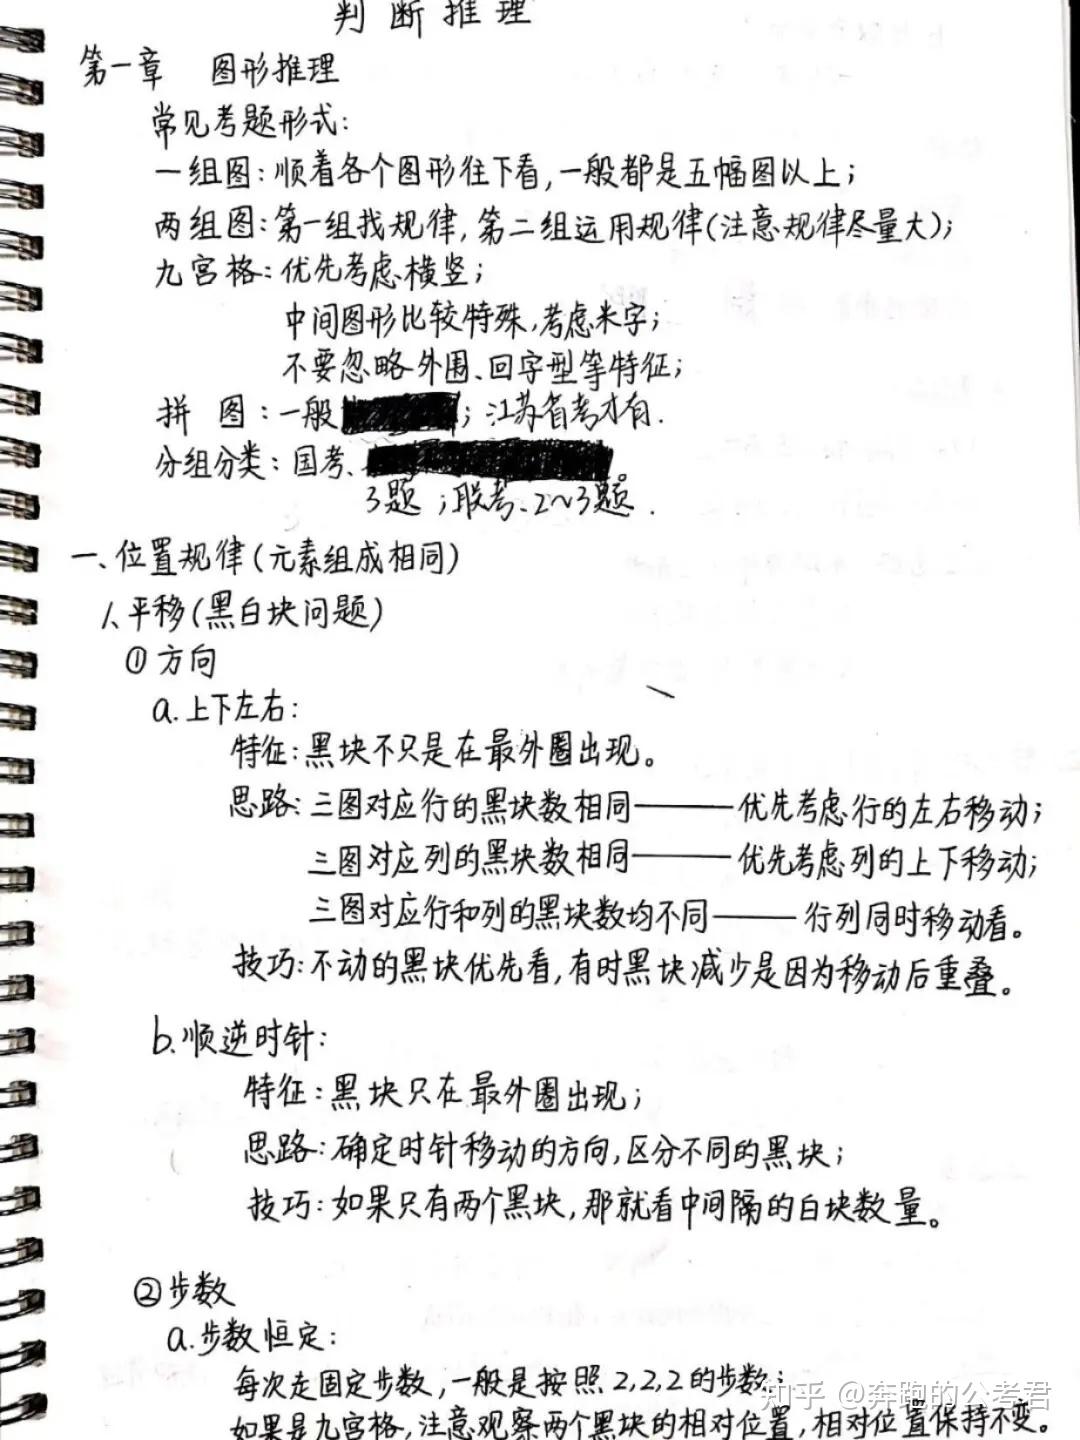 判断推理
第一章 图形推理
常见考题形式:
一组图:顺着各个图形往下看,一般都是五幅图以上;
两组图:第一组找规律,第二组运用规律(注意规律尽量大);
九宫格:优先考虑横竖;
中间图形比较特殊,考虑米字;
不要忽略外围、回字型等特征;
拼 图:一般 ;江苏省考才有.
分组分类:国考、 。
3题 ;联考、2~3题.
一、位置规律(元素组成相同)
1、平移(黑白块问题)
①方向
a.上下左右:
特征:黑块不只是在最外圈出现。
思路:三图对应行的黑块数相同——优先考虑行的左右移动;
三图对应列的黑块数相同——优先考虑列的上下移动;
三图对应行和列的黑块数均不同——行列同时移动看。
技巧:不动的黑块优先看,有时黑块减少是因为移动后重叠。
b.顺逆时针:
特征:黑块只在最外圈出现;
思路:确定时针移动的方向,区分不同的黑块;
技巧:如果只有两个黑块,那就看中间隔的白块数量。
②步数
a.步数恒定:
每次走固定步数,一般是按照2,2,2的步数;
如果是九宫格,注意观察两个黑块的相对位置,相对位置保持不变。
知乎 @奔跑的公考君